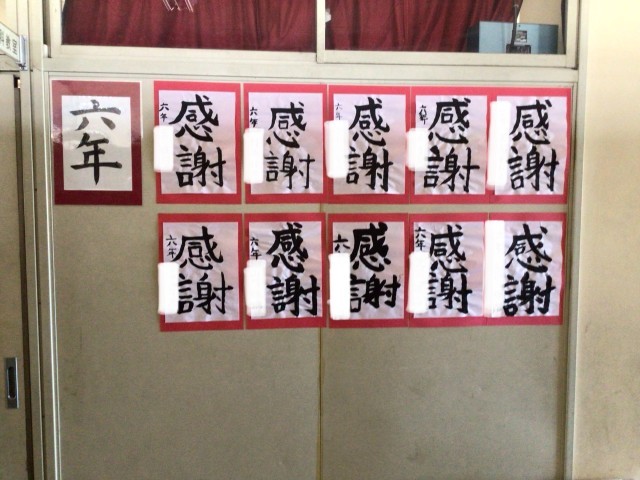 六年
六年
感謝
六年
感謝
六年
感謝
六年
感謝
感謝
六年
感謝
六年
感謝
六年
感謝
六年
感謝
感謝